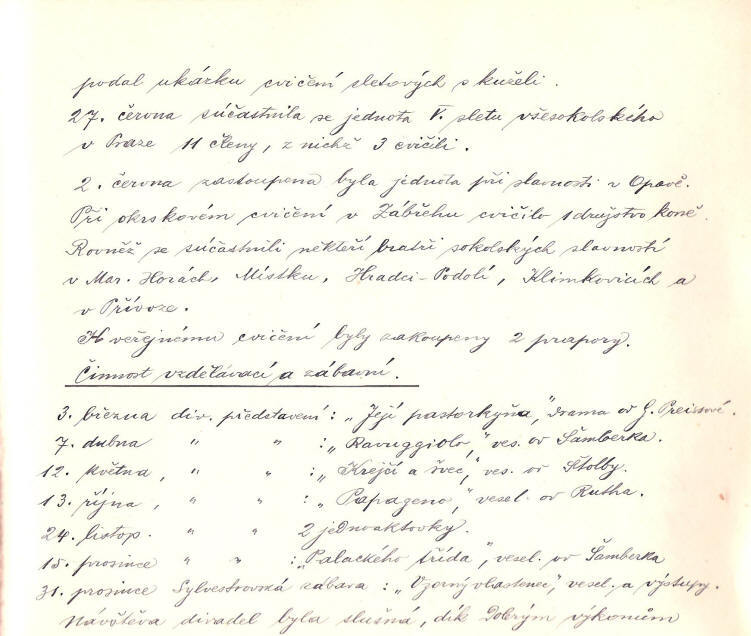 podal ukázku cvičení sletových s kuželi.
27. června súčastnila se jednota V. sletu všesokolského
v Praze 11 členy, z nichž 3 cvičili.
2. června zastoupena byla jednota při slavnosti v Opavě.
Při okrskovém cvičení v Zábřehu cvičilo 1 družstvo koně.
Rovněž se súčastnili někteří bratři sokolských slavností
v Mar. Horách, Místku, Hradci-Podolí, Klimkovicích a
v Přívoze.
K veřejnému cvičení byly zakoupeny 2 prapory.
Činnost vzdělávací a zábavní.
3. března div. představení: „Její pastorkyňa," drama od G. Preissové.
7. dubna " " : „Ravuggiolo," ves. od Šamberka.
12. května, " " : „Krejčí a švec," ves. od Štolby.
13. října, " " : „Papageno," vesel. od Rutha.
24. listop. " " 2 jednoaktovky.
15. prosince " " : „Palackého třída", vesel. od Šamberka
31. prosince Sylvestrovská zábava : „Vzorný vlastenec", vesel. a výstupy.
Návštěva divadel byla slušná, dík dobrým výkonům